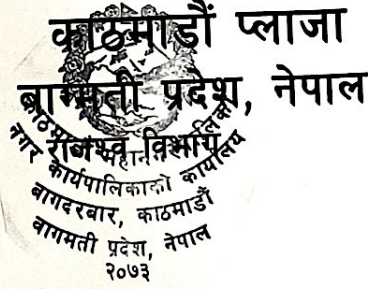 काठमाडौं प्लाजा
बागमती प्रदेश, नेपाल
राजश्व विभाग
काठमाडौं महानगरपालिका
नगर कार्यपालिकाको कार्यालय
बागदरबार, काठमाडौं
वागमती प्रदेश, नेपाल
२०७३